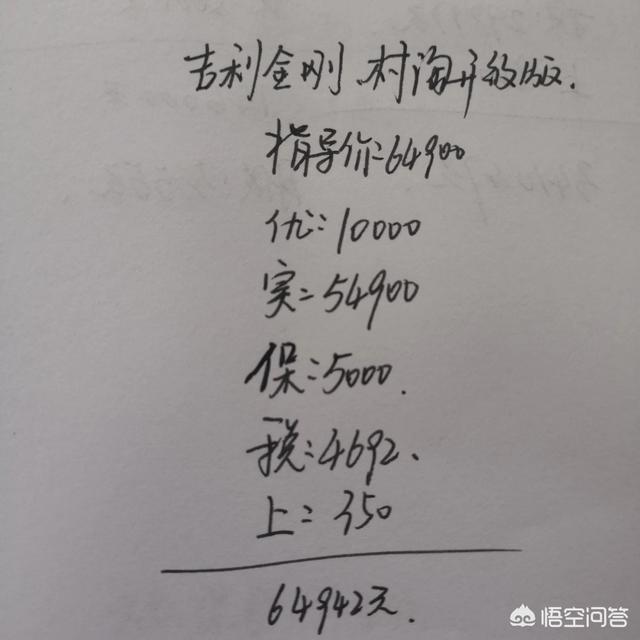 吉利金刚、村淘升级版.
指导价:64900
优:10000
实=54900
保:5000.
税:4692.
上=350
64942元.
悟空问答